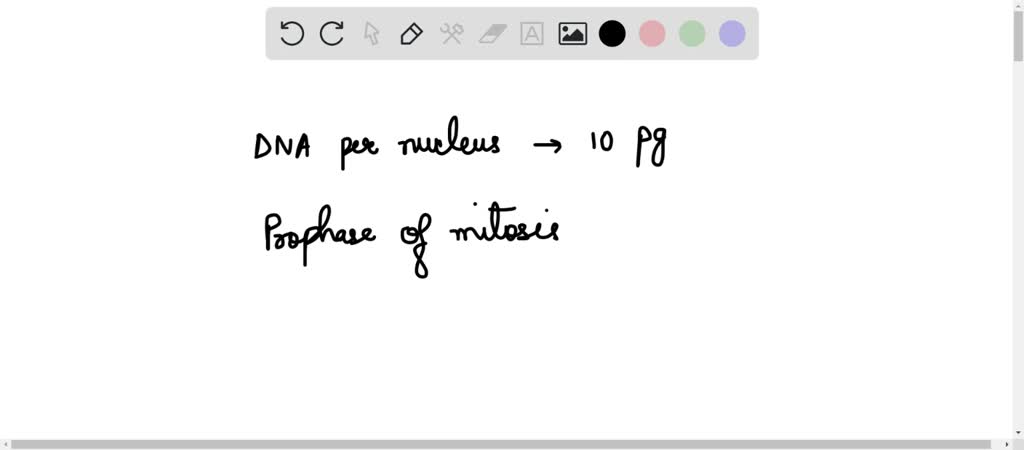 DNA per nucleus → 10 pg
Prophase of mitosis